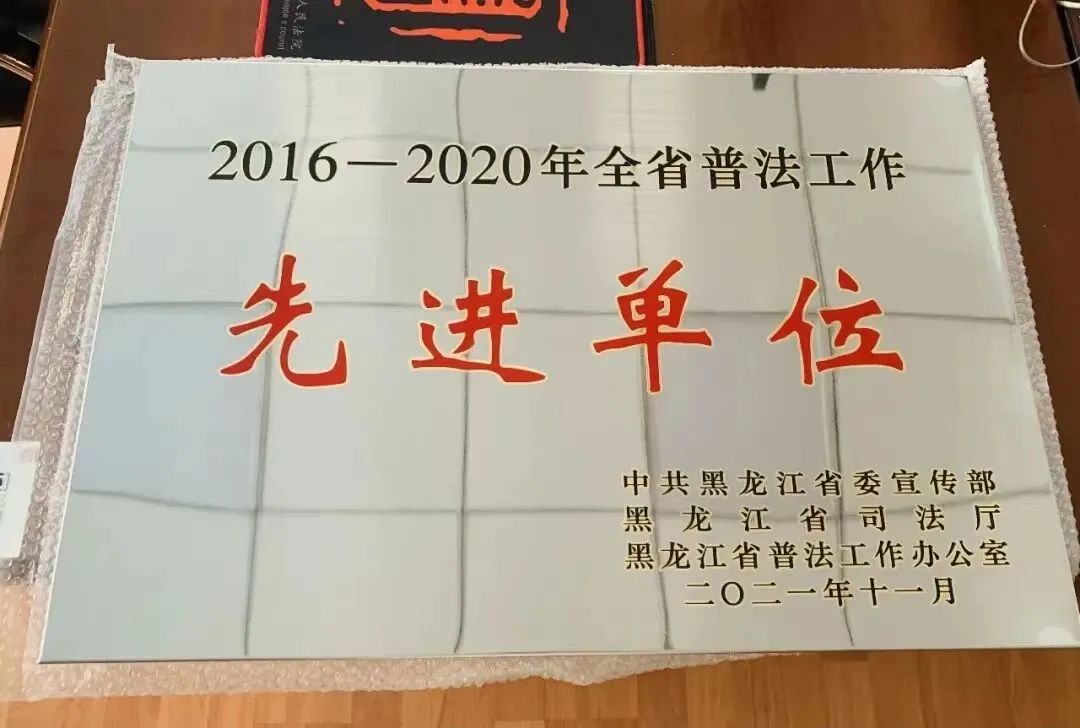 人民法院
people's court
2016—2020年全省普法工作
先进单位
中共黑龙江省委宣传部
黑龙江省司法厅
黑龙江省普法工作办公室
二〇二一年十一月